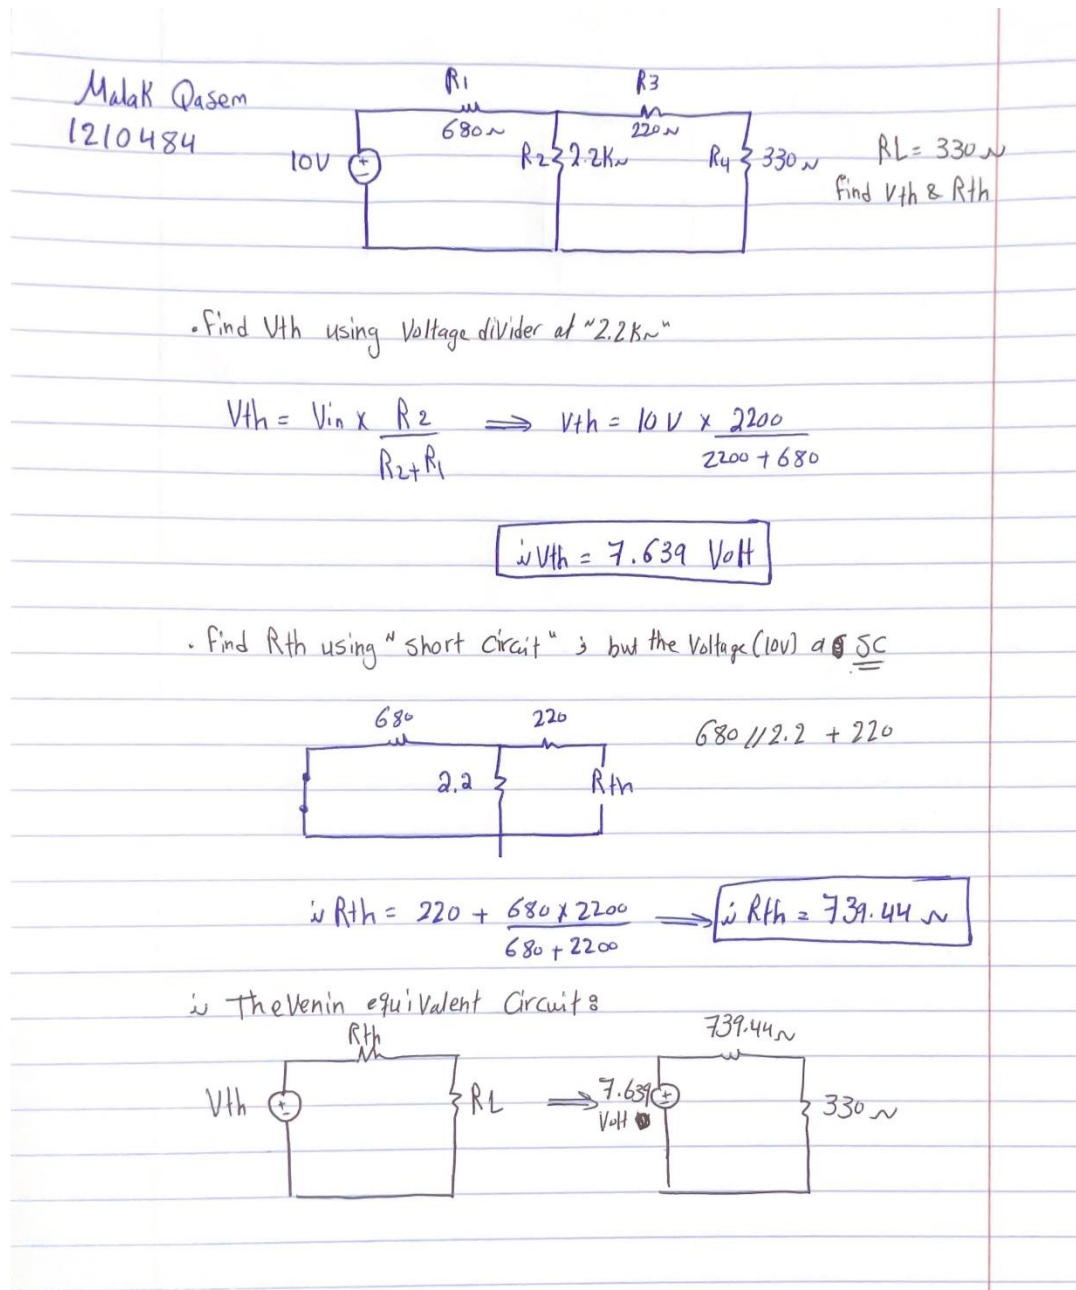 Malak Qasem
1210484
R1
680Ω
R3
220Ω
10V
R2
2.2KΩ
R4
330Ω
RL = 330Ω
find Vth & Rth
• find Vth using Voltage divider at "2.2KΩ"
Vth = Vin x R2 / R2+R1 ⟹ Vth = 10 V x 2200 / 2200 + 680
∴ Vth = 7.639 Volt
• find Rth using "short circuit" ; but the Voltage (10V) a SC
680
220
680 // 2.2 + 220
2.2
Rth
∴ Rth = 220 + 680 x 2200 / 680 + 2200 ⟹ ∴ Rth = 739.44 Ω
∴ Thevenin equivalent Circuit :
Rth
739.44Ω
Vth
RL
⟹
7.639
Volt
330Ω